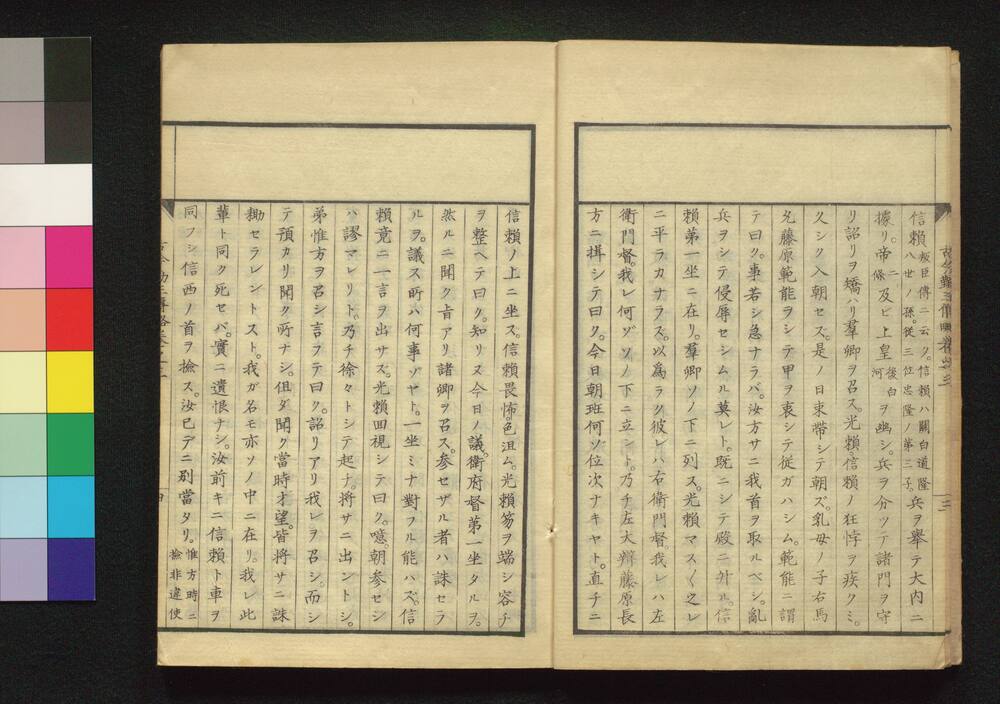 信頼叛臣傳ニ云ク。信頼ハ關白道隆八世ノ孫。從三位忠隆ノ第三子。兵ヲ擧テ大内ニ
據リ。帝二條及ビ上皇後白河ヲ幽シ。兵ヲ分ツテ諸門ヲ守
リ詔リヲ矯ハリ羣卿ヲ召ス。光頼。信頼ノ狂悖ヲ疾クミ。
久シク入朝セス。是ノ日束帶シテ朝ズ。乳母ノ子右馬
允藤原範能ヲシテ甲ヲ衷シテ從ガハシム。範能ニ謂
テ曰ク。事若シ急ナラバ。汝方サニ我首ヲ取ルベシ。亂
兵ヲシテ侵辱セシムル莫レト。既ニシテ殿ニ升ル。信
頼第一坐ニ在リ。羣卿ソノ下ニ列ス。光頼マス〱之レ
ニ平ラカナラス。以爲ラク彼レハ右衛門督。我レハ左
衛門督。我レ何ゾソノ下ニ立ント。乃チ左大辯藤原長
方ニ揖シテ曰ク。今日朝班何ソ位次ナキヤト。直チニ
信頼ノ上ニ坐ス。信頼畏怖。色沮ム。光頼笏ヲ端シ容チ
ヲ整ヘテ曰ク。知リヌ今日ノ議。衛府督第一坐タルヲ。
然ルニ聞ク旨アリ諸卿ヲ召ス。参セザル者ハ誅セラ
ルヲ。議ス所ハ何事ゾヤト。一坐ミナ對フル能ハズ。信
頼竟ニ一言ヲ出サス。光頼四視シテ曰ク。噫朝参セシ
ハ謬マレリト。乃チ徐々トシテ起ナ。將サニ出ントシ。
弟惟方ヲ召シ。言ヲテ曰ク。詔リアリ我レヲ召シ。而シ
テ預カリ聞ク所ナシ。但ダ聞ク當時才望。皆將サニ誅
勦セラレントスト。我ガ名モ亦ソノ中ニ在リ。我レ此
輩ト同ク死セバ。實ニ遺恨ナシ。汝前キニ信頼ト車ヲ
同フシ信西ノ首ヲ撿ス。汝已デニ別當タリ。惟方時ニ撿非違使